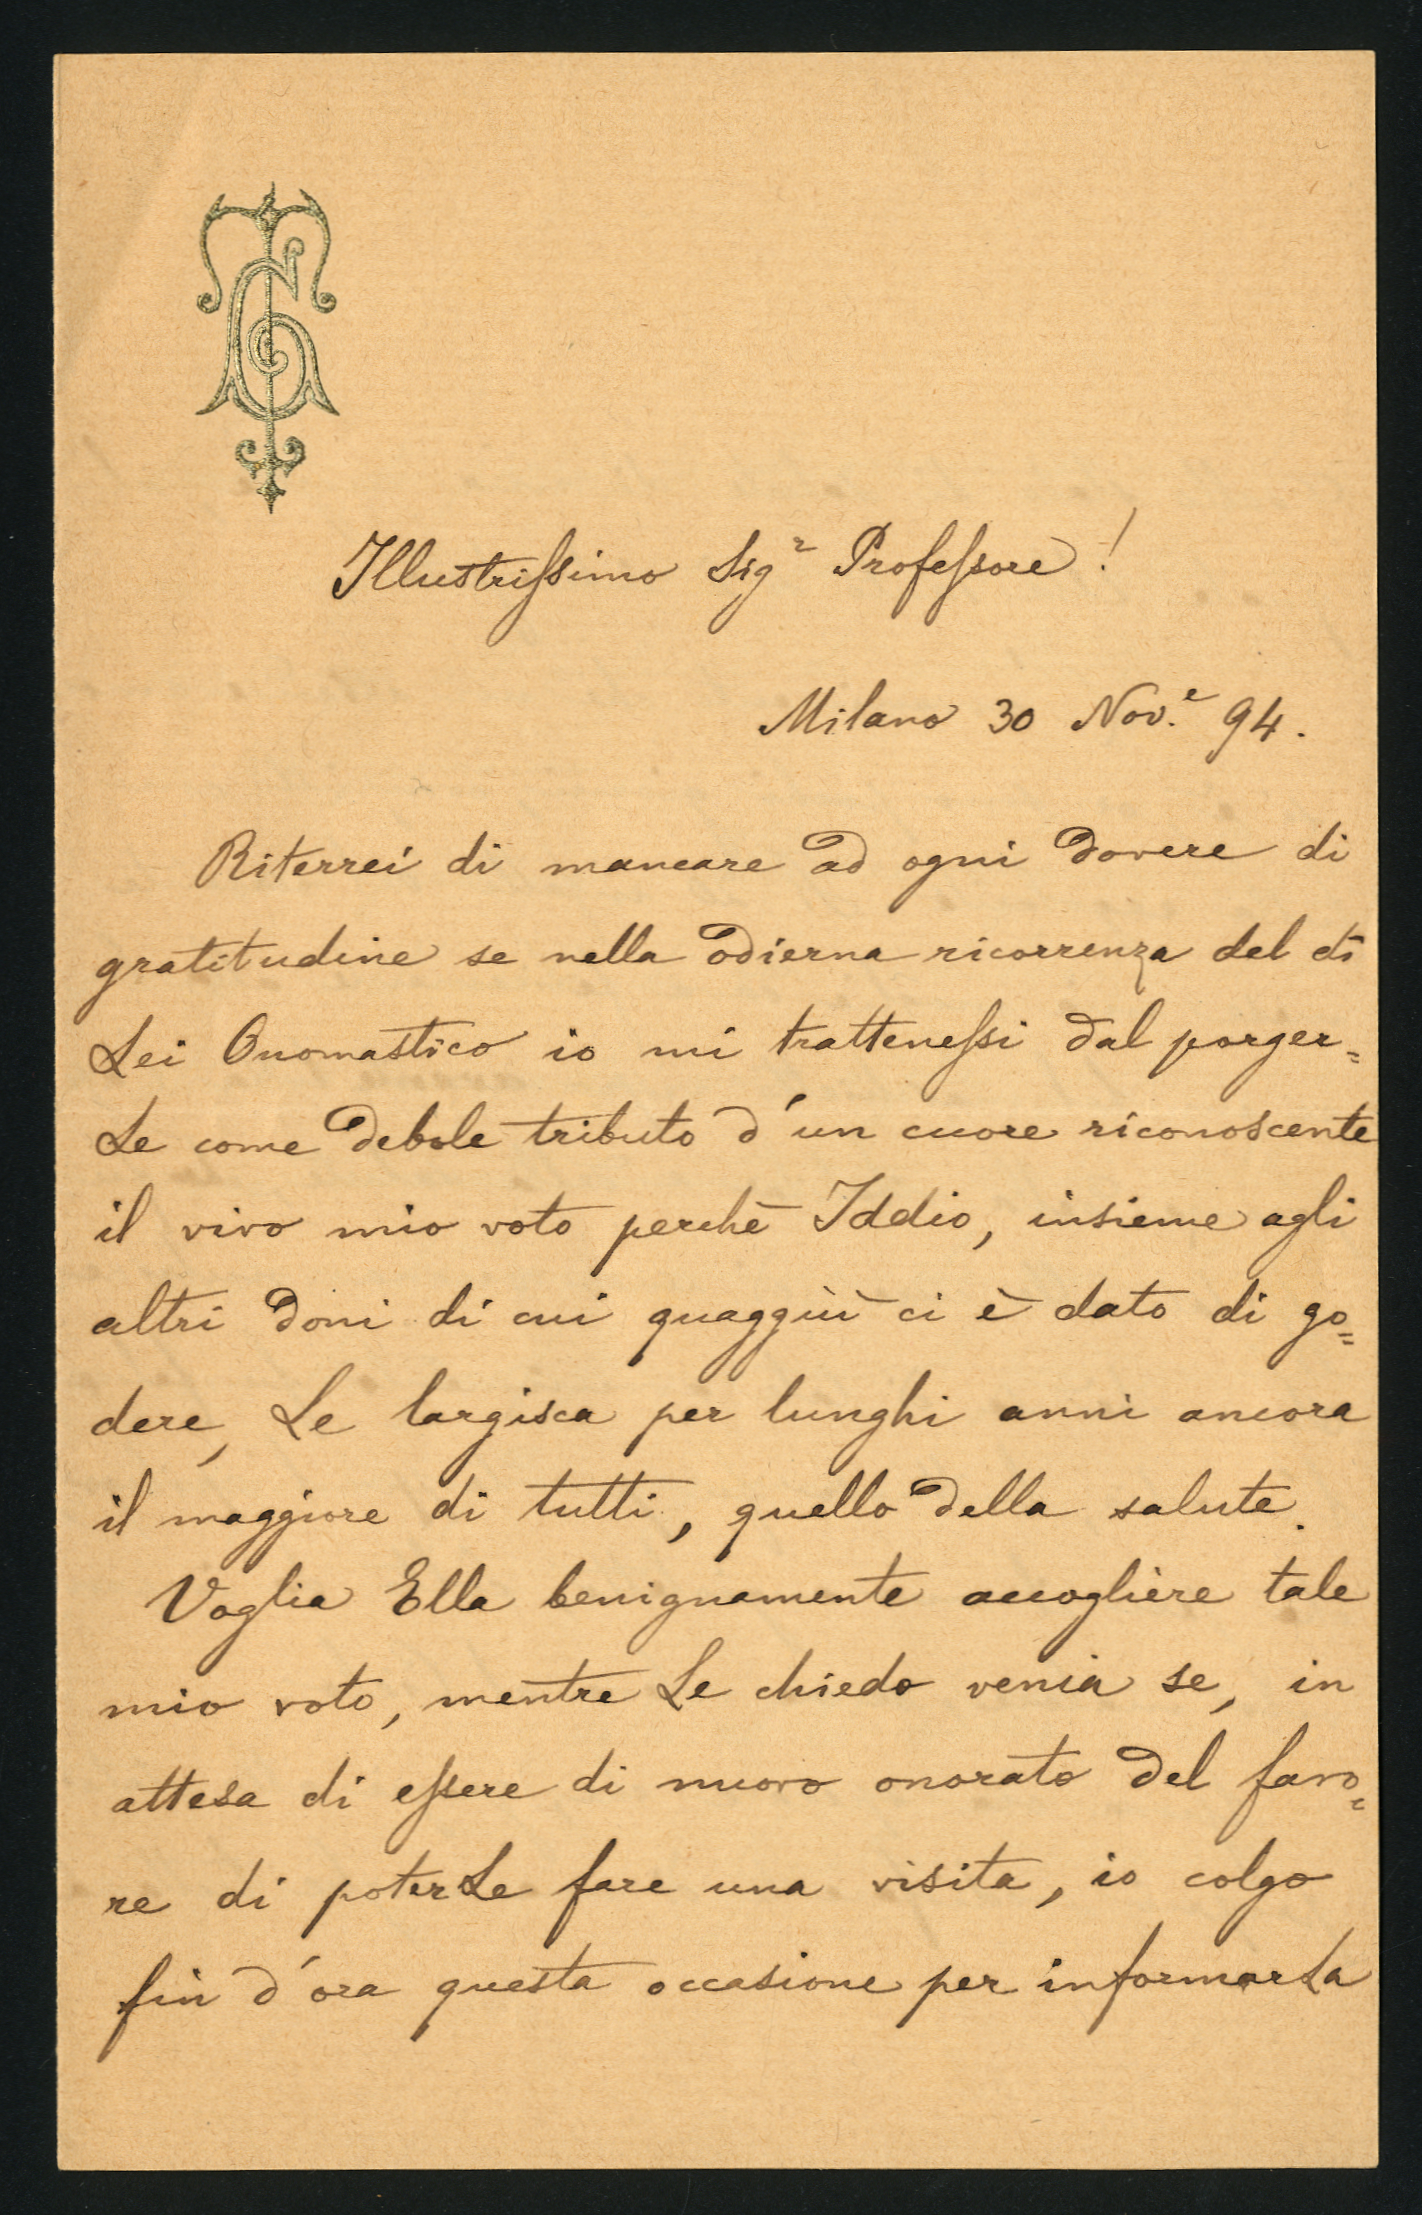 TG
Illustrissimo Sigr Professore!
Milano 30 Nov.e 94.
Riterrei di mancare ad ogni dovere di
gratitudine se nella odierna ricorrenza del di
Lei Onomastico io mi trattenessi dal porger=
Le come debole tributo d'un cuore riconoscente
il vivo mio voto perchè Iddio, insieme agli
altri doni di cui quaggiù ci è dato di go=
dere, Le largisca per lunghi anni ancora
il maggiore di tutti, quello della salute.
Voglia Ella benignamente accogliere tale
mio voto, mentre Le chiedo venia se, in
attesa di essere di nuovo onorato del favo=
re di poterLe fare una visita, io colgo
fin d'ora questa occasione per informarLa